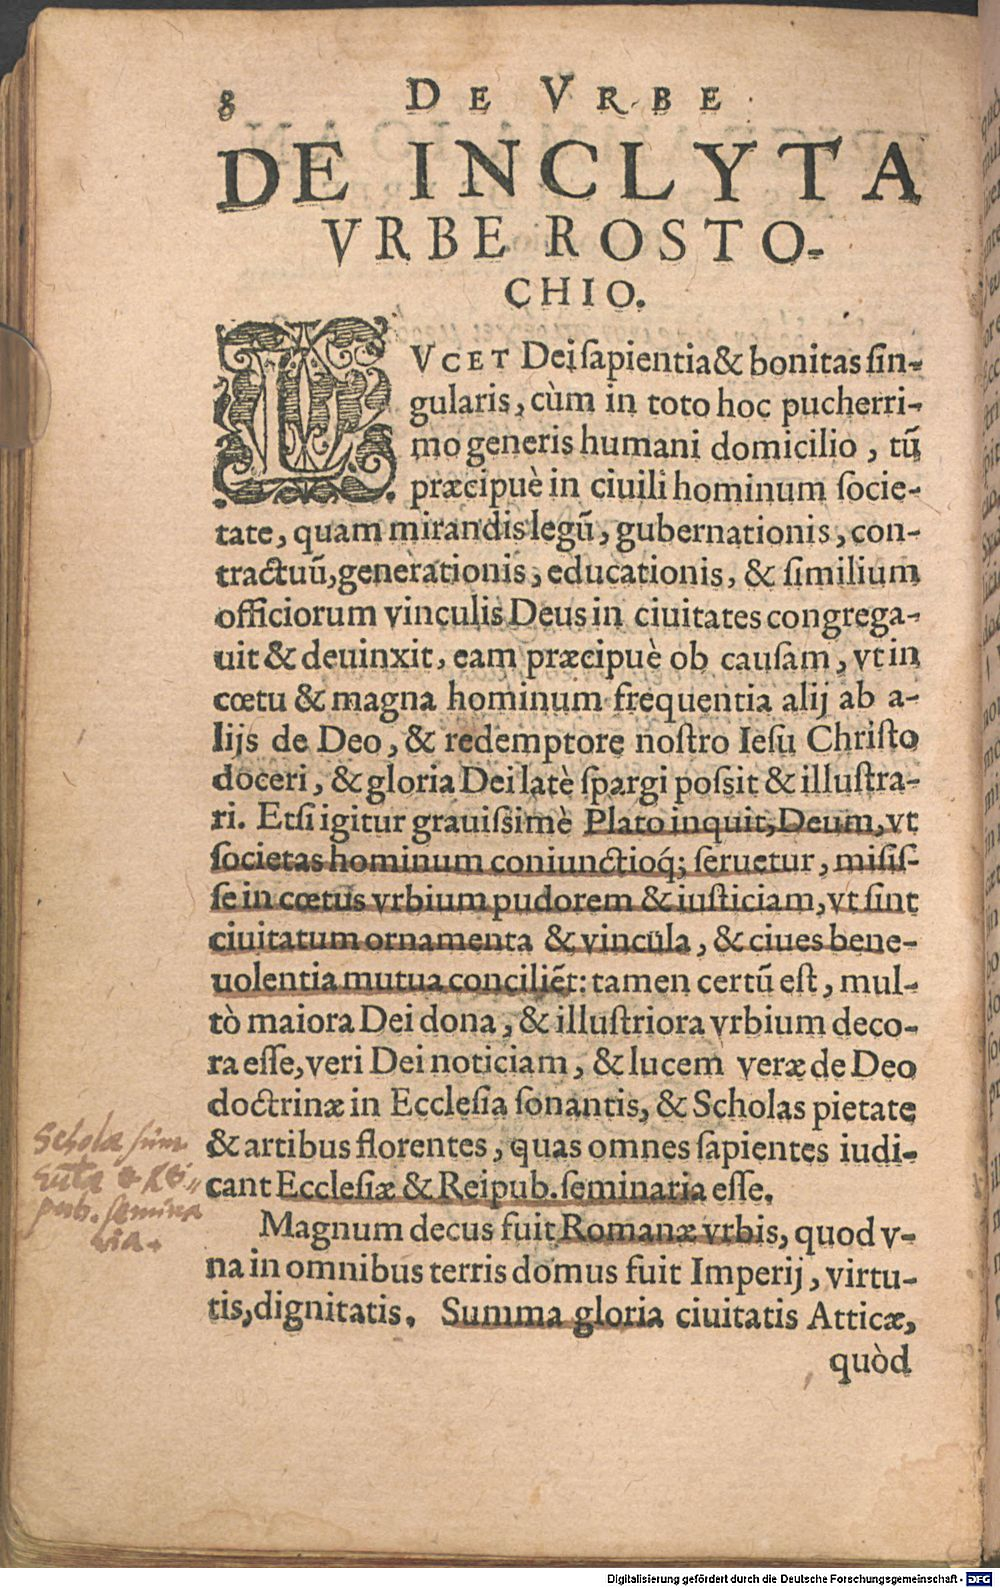 8 DE VRBE
DE INCLYTA
VRBE ROSTO-
CHIO.
LVCET Dei ſapientia & bonitas ſin-
gularis, cùm in toto hoc pucherri-
mo generis humani domicilio, tũ
præcipuè in ciuili hominum ſocie-
tate, quam mirandis legũ, gubernationis, con-
tractuũ, generationis, educationis, & ſimilium
officiorum vinculis Deus in ciuitates congrega-
uit & deuinxit, eam præcipuè ob cauſam, vt in
cœtu & magna hominum frequentia alij ab a-
lijs de Deo, & redemptore noſtro Ieſu Chriſto
doceri, & gloria Dei latè ſpargi poſsit & illuſtra-
ri. Etſi igitur grauiſsimè Plato inquit, Deum, vt
ſocietas hominum coniunctioq́; ſeruetur, miſiſ-
ſe in cœtus vrbium pudorem & iuſticiam, vt ſint
ciuitatum ornamenta & vincula, & ciues bene-
uolentia mutua conciliẽt: tamen certũ eſt, mul-
tò maiora Dei dona, & illuſtriora vrbium deco-
ra eſſe, veri Dei noticiam, & lucem veræ de Deo
doctrinæ in Eccleſia ſonantis, & Scholas pietate
& artibus florentes, quas omnes ſapientes iudi-
cant Eccleſiæ & Reipub. ſeminaria eſſe.
Scholæ sunt
& Rei-
pub. semina
ria.
Magnum decus fuit Romanæ vrbis, quod v-
na in omnibus terris domus fuit Imperij, virtu-
tis, dignitatis. Summa gloria ciuitatis Atticæ,
quòd
Digitalisierung gefördert durch die Deutsche Forschungsgemeinschaft - DFG